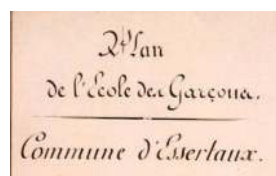 Plan
de l'Ecole des Garçons.
Commune d'Essertaux.